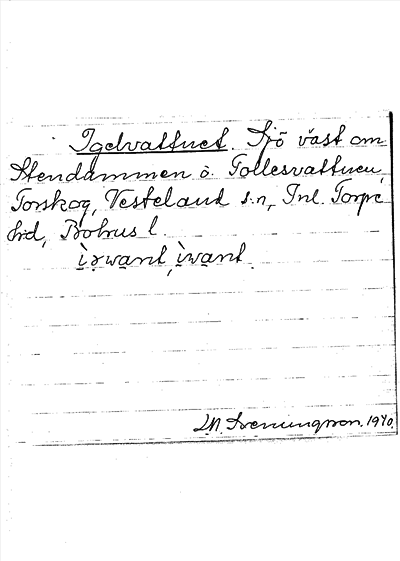 Igelvattnet. Sjö väst om
Stendammen o. Tollesvattnen,
Torskog, Vesterland s:n, Inl. Torpe
hd, Bohus l.
L.M. Svenungsson. 1940.